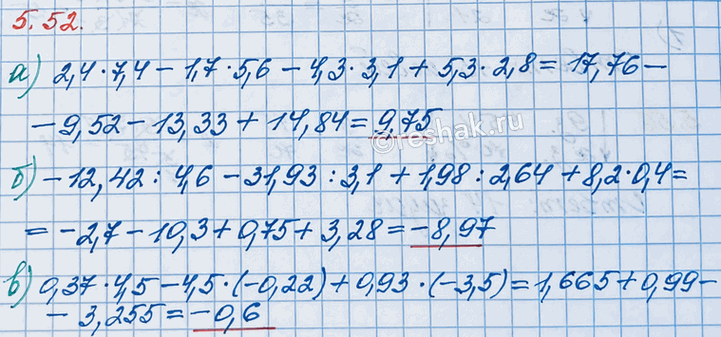 5.52.
а) 2,4·7,4 − 1,7·5,6 − 4,3·3,1 + 5,3·2,8 = 17,76 −
− 9,52 − 13,33 + 14,84 = 9,75
©reshak.ru
б) −12,42 : 4,6 − 31,93 : 3,1 + 1,98 : 2,64 + 8,2·0,4 =
= −2,7 − 10,3 + 0,75 + 3,28 = −8,97
в) 0,37·4,5 − 4,5·(−0,22) + 0,93·(−3,5) = 1,665 + 0,99 −
− 3,255 = −0,6